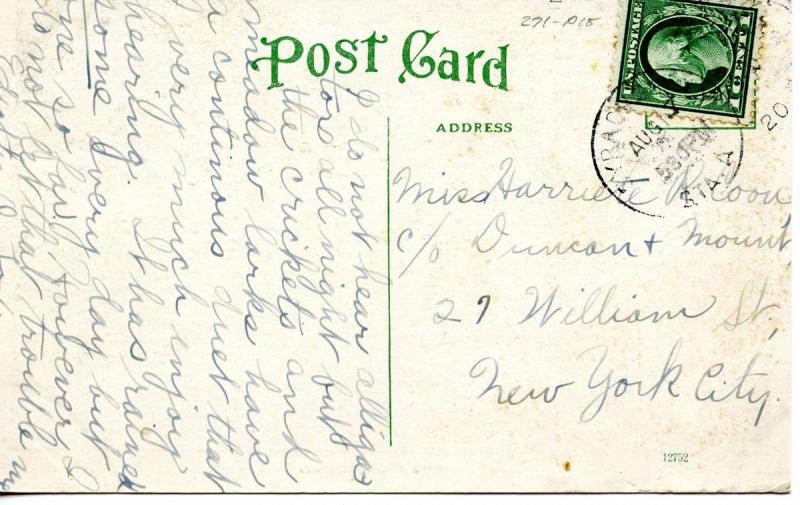 271-D18
Post Card
ADDRESS
U.S. POSTAGE
1 CENT 1
AUG
STA-A
20
Miss Harriette
c/o Duncan + Mount
27 William St,
New York City.
12752
I do not hear alliga
tors all night but
the crickets and
meadow larks have
a continous duet that
I very much enjoy
hearing. It has rained
some every day but
one so far. However I
do not get that trouble